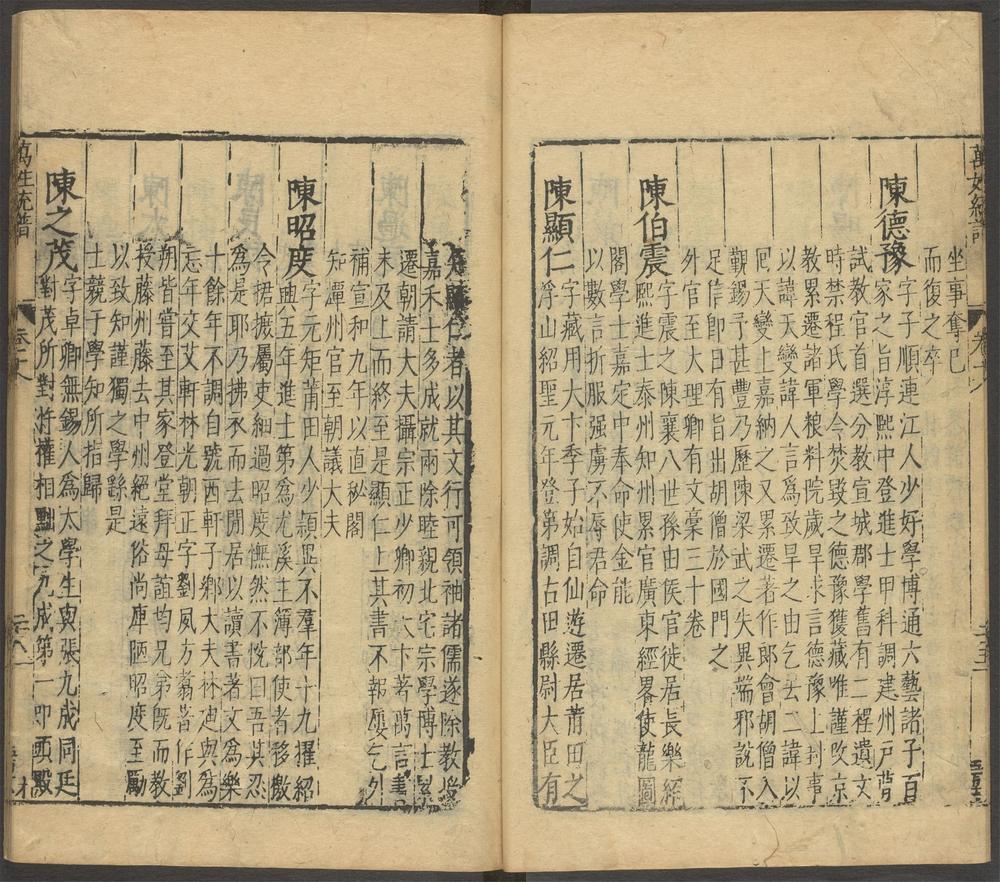 萬姓統譜
卷十八
坐事奪已
而復之卒
陳德豫字子順連江人少好學博通六藝諸子百
家之旨淳熙中登進士甲科調建州戶曹
試教官首選分教宣城郡學舊有二程遺文
時禁程氏學令焚毀之德豫獲藏唯謹改京
教累遷諸軍粮料院歲旱求言德豫上封事
以諱天變諱人言為致旱之由乞去二諱以
囘天變上嘉納之又累遷著作郎會胡僧入
覲錫予甚豐乃歷陳梁武之失異端邪說不
足信卽日有旨出胡僧於國門之
外官至大理卿有文豪三十卷
陳伯震字震之陳襄八世孫由侯官徙居長樂紹
熙進士泰州知州累官廣東經畧使龍圖
閣學士嘉定中奉命使金能
以數言折服强虜不辱君命
陳顯仁字藏用大卞季子始自仙遊遷居莆田之
浮山紹聖元年登第調古田縣尉大臣有
顯仁者以其文行可領袖諸儒遂除教授
嘉禾士多成就兩除睦親北宅宗學博士
遷朝請大夫攝宗正少卿初大卞著萬言書
未及上而終至是顯仁上其書不報屢乞外
補宣和九年以直秘閣
知潭州官至朝議大夫
陳昭度字元矩莆田人少頴異不羣年十九擢紹
興五年進士第為尤溪主簿部使者移檄
令捃摭屬吏細過昭度憮然不悅曰吾其忍
為是耶乃拂衣而去閒居以讀書著文為樂
十餘年不調自號西軒子鄉大夫林迪與為
忘年交艾軒林光朝正字劉夙方翥著作劉
朔皆嘗至其家登堂拜母誼均兄弟旣而教
授藤州藤去中州絕遠俗尚庳陋昭度至勵
以致知謹獨之學繇是
士競于學知所指歸
陳之茂字卓卿無錫人為太學生與張九成同廷
對茂所對忤權相黜之九成第一卽頭殿
萬姓統譜
卷十八